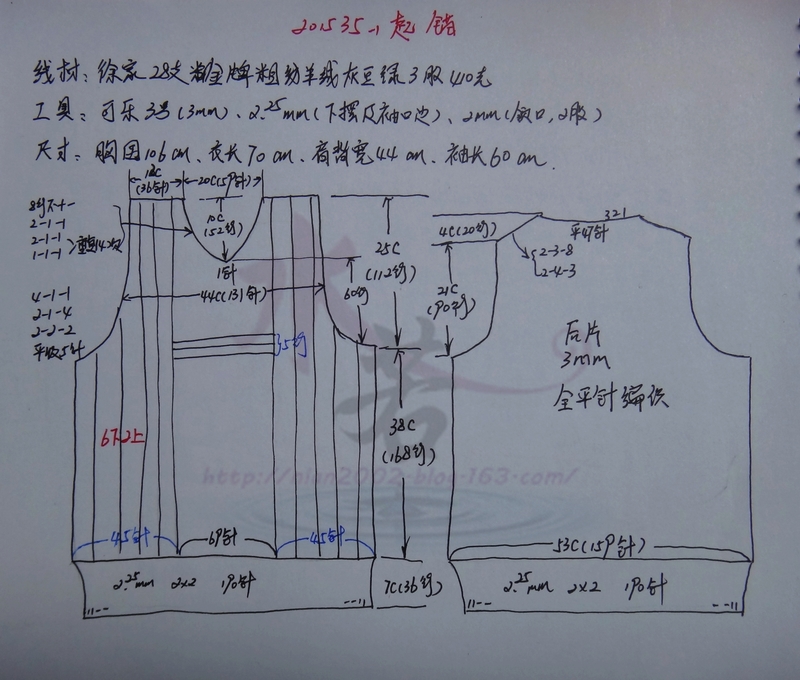 201535-1起销
线材：徐家28支金牌粗纺羊绒灰豆绿3股410克
工具：可乐3号(3mm)、2.25mm(下摆及袖口边)、2mm(领口,2股)
尺寸：胸围106cm、衣长70cm、肩背宽44cm、袖长60cm.
12C
(36针)
20C(59针)
8行不加
2-1-1
2-1-1
1-1-1
重复14次
10C
(52行)
1针
44C(131针)
60行
4-1-1
2-1-4
2-2-2
平收5针
35行
6下2上
45针
69针
45针
2.25mm 2x2 190针
25C
(112行)
38C
(168行)
7C(36行)
4C(20行)
321
平收针
2-3-8
2-4-3
21C
(90行)
后片
3mm
全平针编织
53C(159针)
2.25mm 2x2 190针
水若
http://nian2002-blog.163.com/